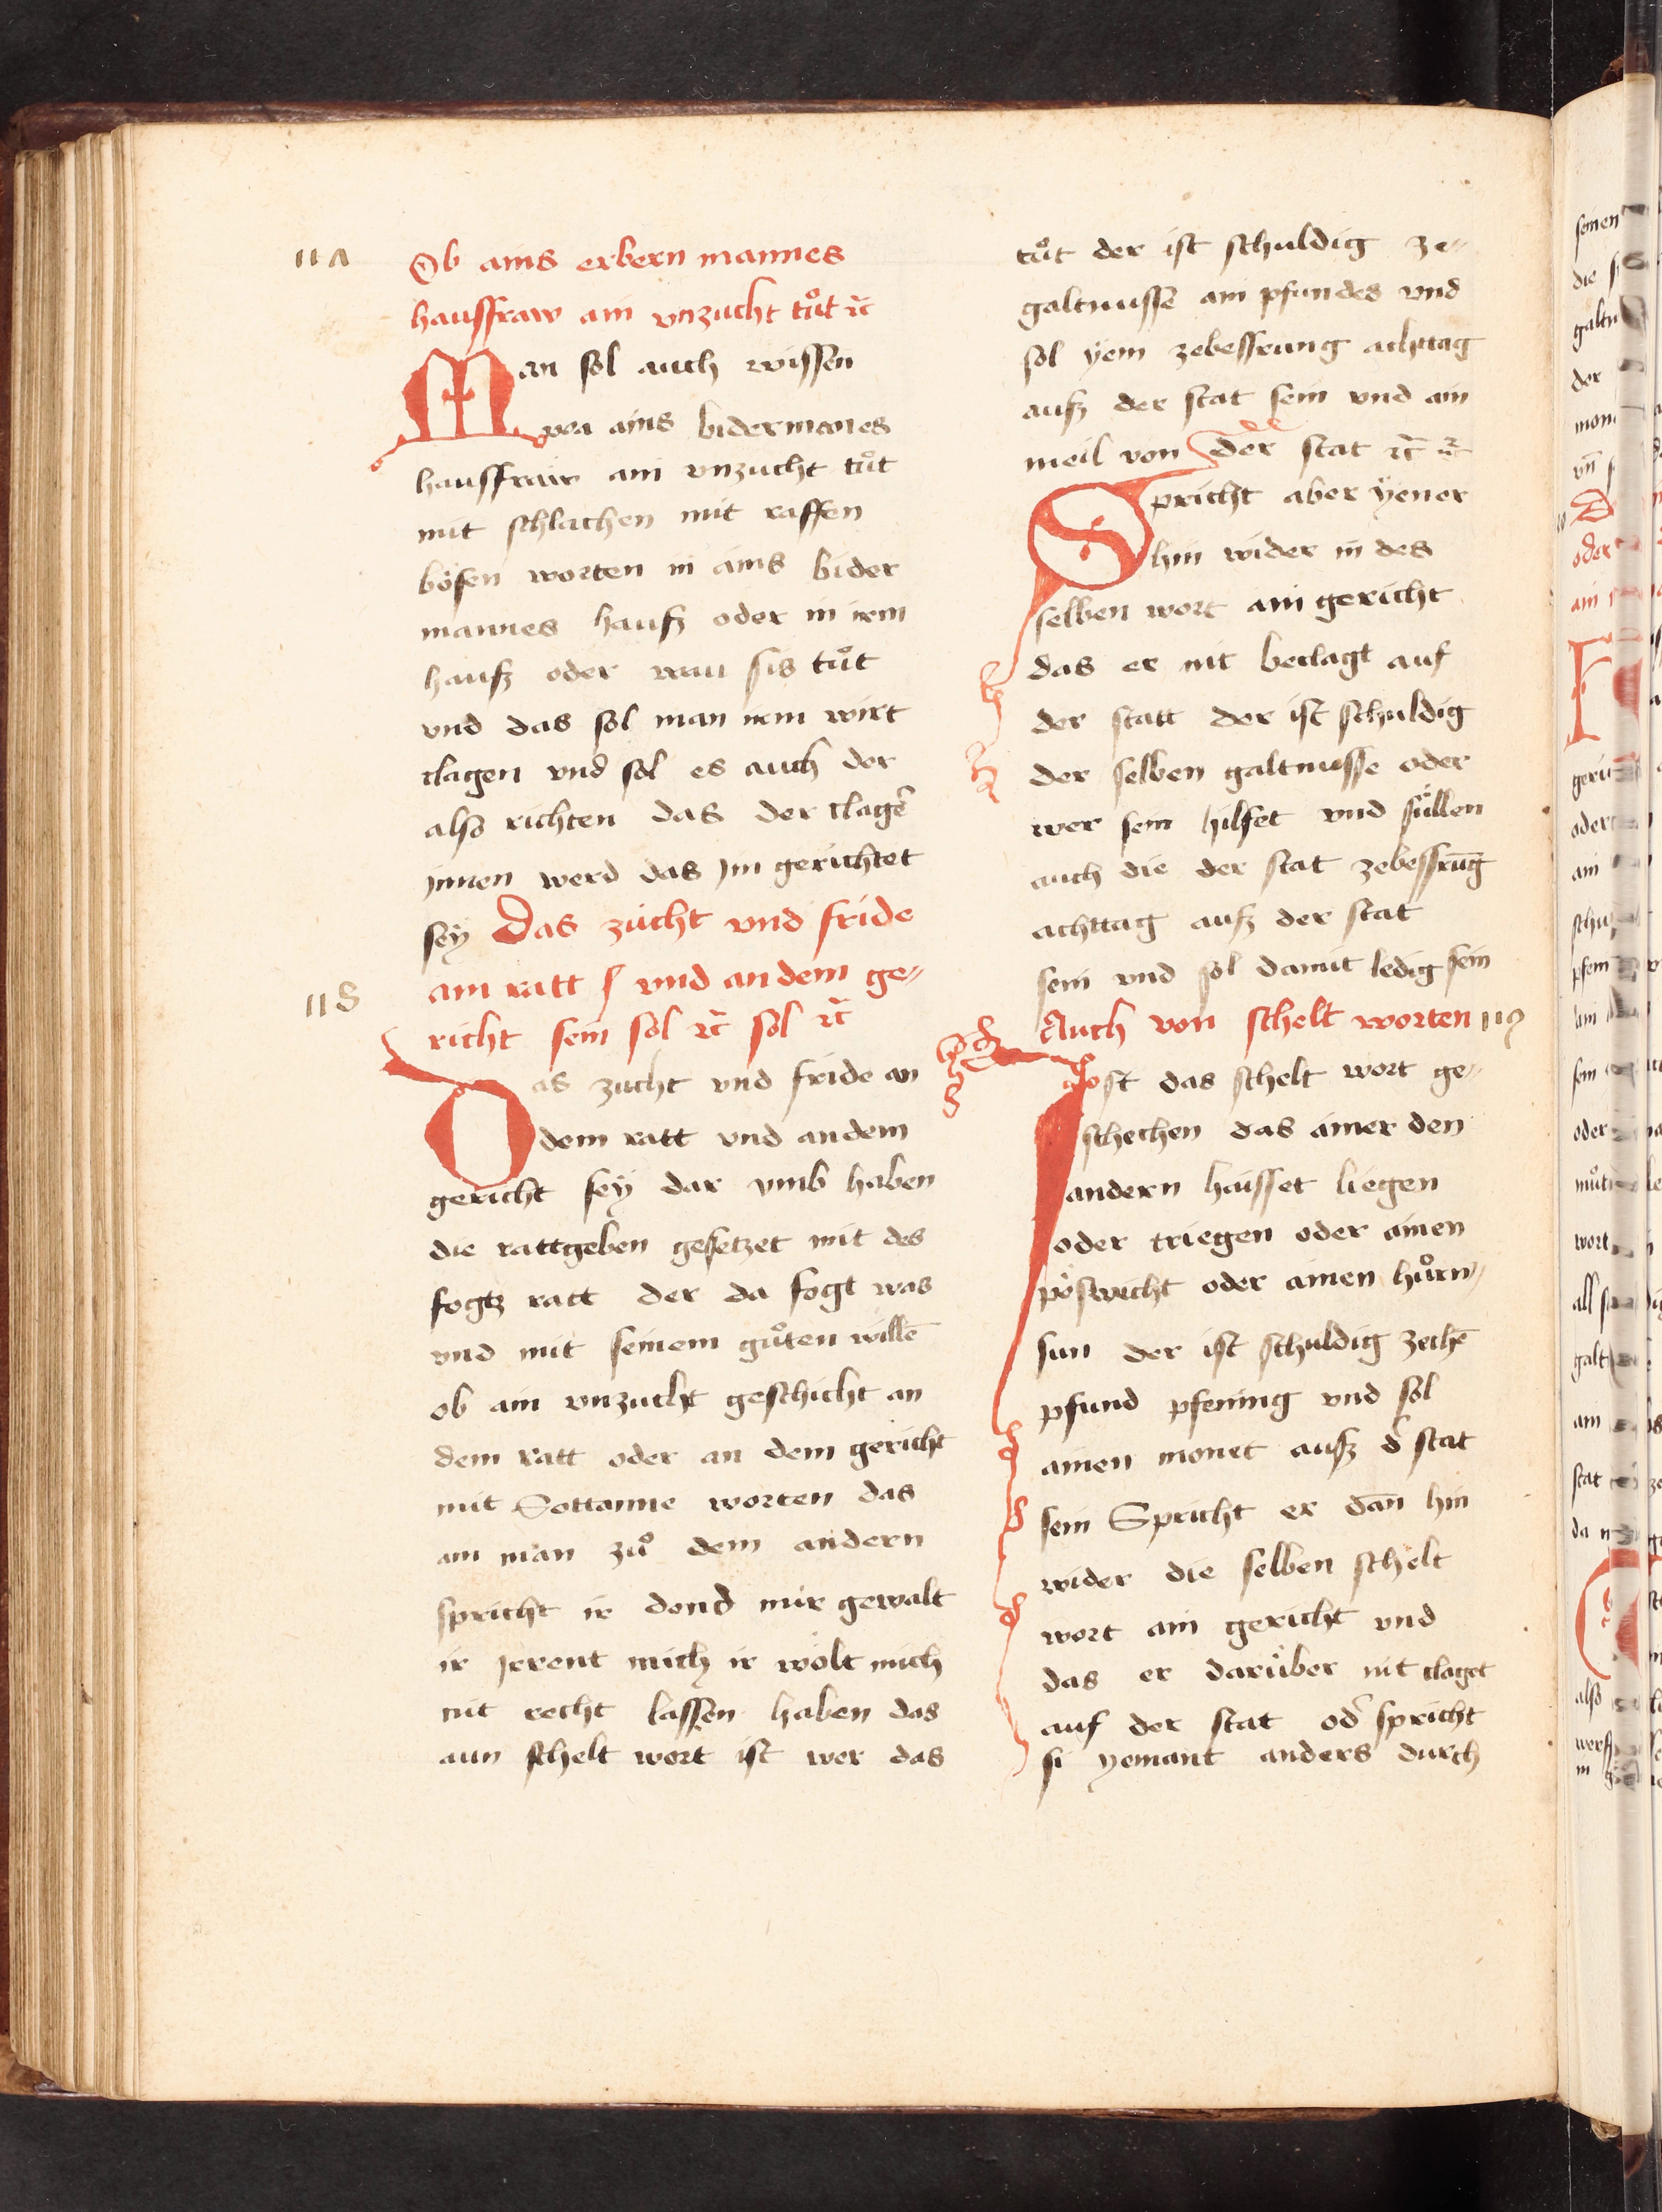 117
Ob ains erbern mannes
hausfraw ain vnzucht tůt ꝛc̃
Man sol auch wissen
wa ains bidermanes
hausfraw ain vnzucht tůt
mit schlachen mit raffen
bösen worten in ains bider
mannes hausz oder in irem
hausz oder wau sis tůt
vnd das sol man irem wirt
clagen vnd sol es auch der
also richten das der clagē
jnnen werd das jm gerichtet
sey Das zucht vnd fride
am ratt / vnd an dem ge-
118
richt sein sol ꝛc̃ sol ꝛc̃
Das zucht vnd fride an
dem ratt vnd an dem
gericht sey dar vmb haben
die rattgeben gesetzet mit des
fogtz ratt der da fogt was
vnd mit seinem gůten willē
ob ain vnzucht geschicht an
dem ratt oder an dem gericht
mit Sottanne worten das
ain man zů dem andern
spricht ir dond mir gewalt
ir jrrent mich ir wölt mich
nit recht lassen haben das
aun schelt wort ist wer das
tůt der ist schuldig ze-
galtnusse ain pfundes vnd
sol yem zebessrung achttag
ausz der stat sein vnd ain
meil von der stat ꝛc̃ ꝛc̃
Spricht aber yener
hin wider in des
selben wort ain gericht
das er nit beclagt auf
der statt der ist schuldig
der selben galtnusse oder
wer sein hilfet vnd süllen
auch die der stat zebessrūg
achttag ausz der stat
sein vnd sol damit ledig sein
Auch von schelt worten 119
Jst das schelt wort ge-
schechen das ainer den
andern haisset liegen
oder triegen oder ainen
pöswicht oder ainen hůrn-
sun der ist schuldig zechē
pfund pfening vnd sol
ainen monet ausz d̄ stat
sein Spricht er dān hin
wider die selben schelt
wort ain gericht vnd
das er darüber nit claget
auf der stat od̄ spricht
si yemant anders durch